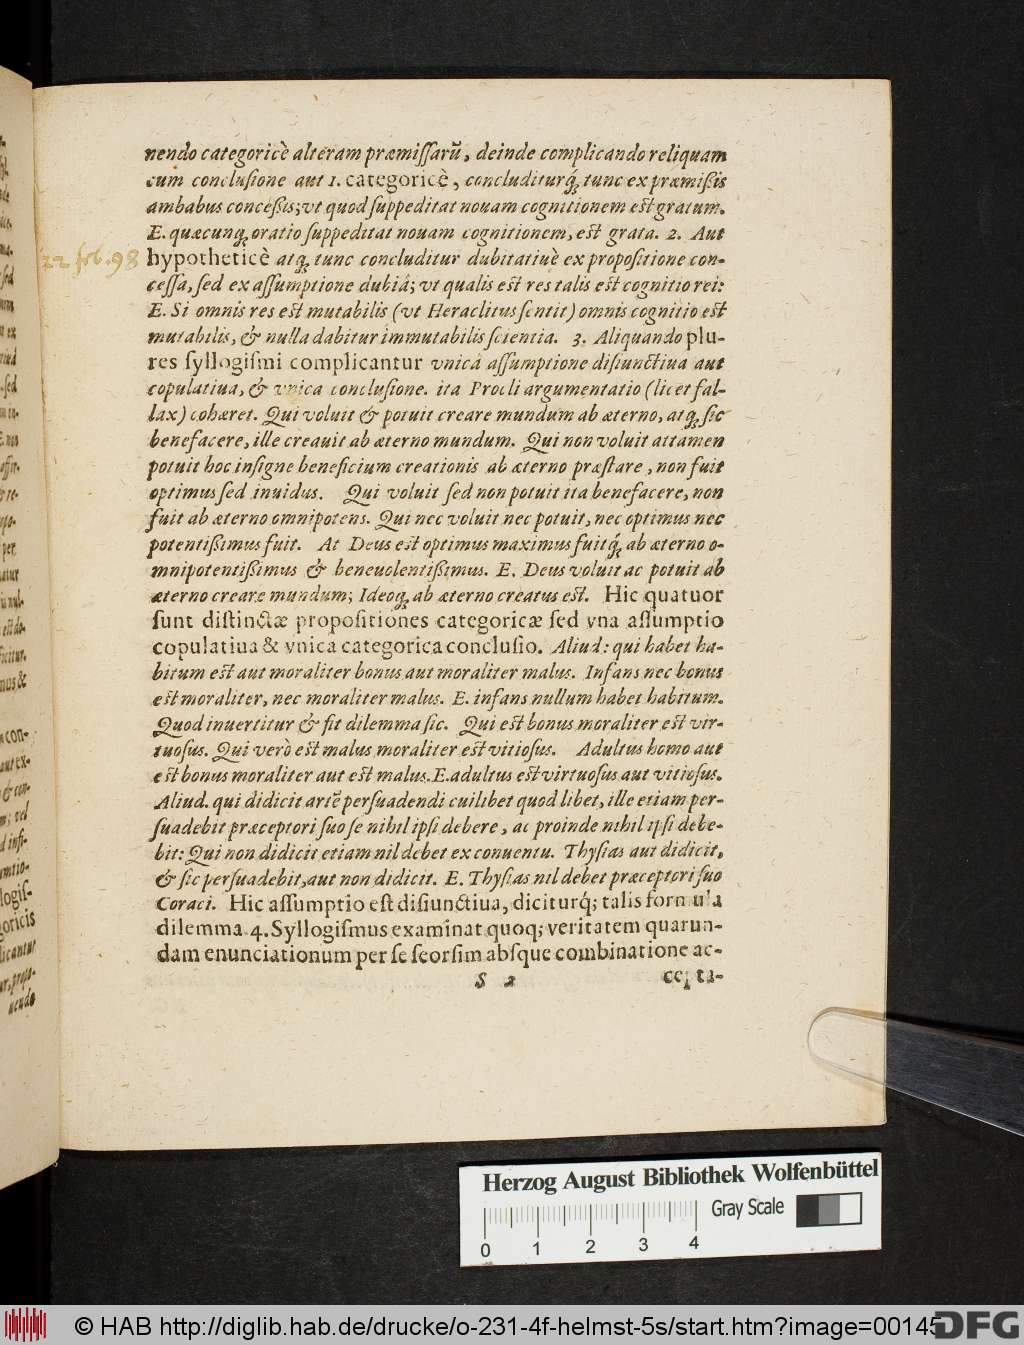 nendo categoricè alteram præmissarũ, deinde complicando reliquam
cum conclusione aut 1. categoricè, concluditurq́; tunc ex præmißis
ambabus conceßis; vt quod suppeditat nouam cognitionem est gratum.
E. quæcunq; oratio suppeditat nouam cognitionem, est grata. 2. Aut
22 feb. 98
hypotheticè atq; tunc concluditur dubitatiuè ex propositione con-
cessa, sed ex assumptione dubiâ; vt qualis est res talis est cognitio rei:
E. Si omnis res est mutabilis (vt Heraclitus sentit) omnis cognitio est
mutabilis, & nulla dabitur immutabilis scientia. 3. Aliquando plu-
res syllogismi complicantur vnica assumptione disiunctiua aut
copulatiua, & vnica conclusione. ita Procli argumentatio (licet fal-
lax) cohæret. Qui voluit & potuit creare mundum ab æterno, atq; sic
benefacere, ille creauit ab æterno mundum. Qui non voluit attamen
potuit hoc insigne beneficium creationis ab æterno præstare, non fuit
optimus sed inuidus. Qui voluit sed non potuit ita benefacere, non
fuit ab æterno omnipotens. Qui nec voluit nec potuit, nec optimus nec
potentißimus fuit. At Deus est optimus maximus fuitq́; ab æterno o-
mnipotentißimus & beneuolentißimus. E. Deus voluit ac potuit ab
æterno creare mundum; Ideoq; ab æterno creatus est. Hic quatuor
sunt distinctæ propositiones categoricæ sed vna assumptio
copulatiua & vnica categorica conclusio. Aliud: qui habet ha-
bitum est aut moraliter bonus aut moraliter malus. Infans nec bonus
est moraliter, nec moraliter malus. E. infans nullum habet habitum.
Quod inuertitur & fit dilemma sic. Qui est bonus moraliter est vir-
tuosus. Qui verò est malus moraliter est vitiosus. Adultus homo aut
est bonus moraliter aut est malus. E. adultus est virtuosus aut vitiosus.
Aliud. qui didicit artẽ persuadendi cuilibet quod libet, ille etiam per-
suadebit præceptori suo se nihil ipsi debere, ac proinde nihil ipsi debe-
bit: Qui non didicit etiam nil debet ex conuentu. Thysias aut didicit,
& sic persuadebit, aut non didicit. E. Thysias nil debet præceptori suo
Coraci. Hic assumptio est disiunctiua, diciturq́; talis formula
dilemma 4. Syllogismus examinat quoq; veritatem quarun-
dam enunciationum per se seorsim absque combinatione ac-
S 2 cepta-
Herzog August Bibliothek Wolfenbüttel
Gray Scale
0 1 2 3 4
© HAB http://diglib.hab.de/drucke/o-231-4f-helmst-5s/start.htm?image=00145
DFG